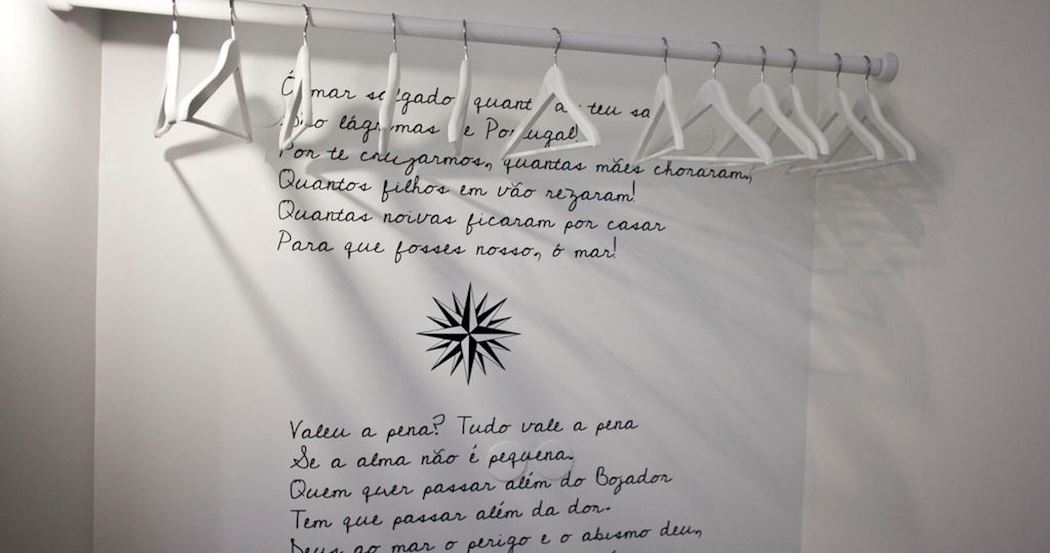 Ó mar salgado quant teu sa
lágrimas Portugal!
Por te cruzarmos, quantas mães choraram,
Quantos filhos em vão rezaram!
Quantas noivas ficaram por casar
Para que fosses nosso, ó mar!
Valeu a pena? Tudo vale a pena
Se a alma não é pequena.
Quem quer passar além do Bojador
Tem que passar além da dor.
Deus ao mar o perigo e o abismo deu,